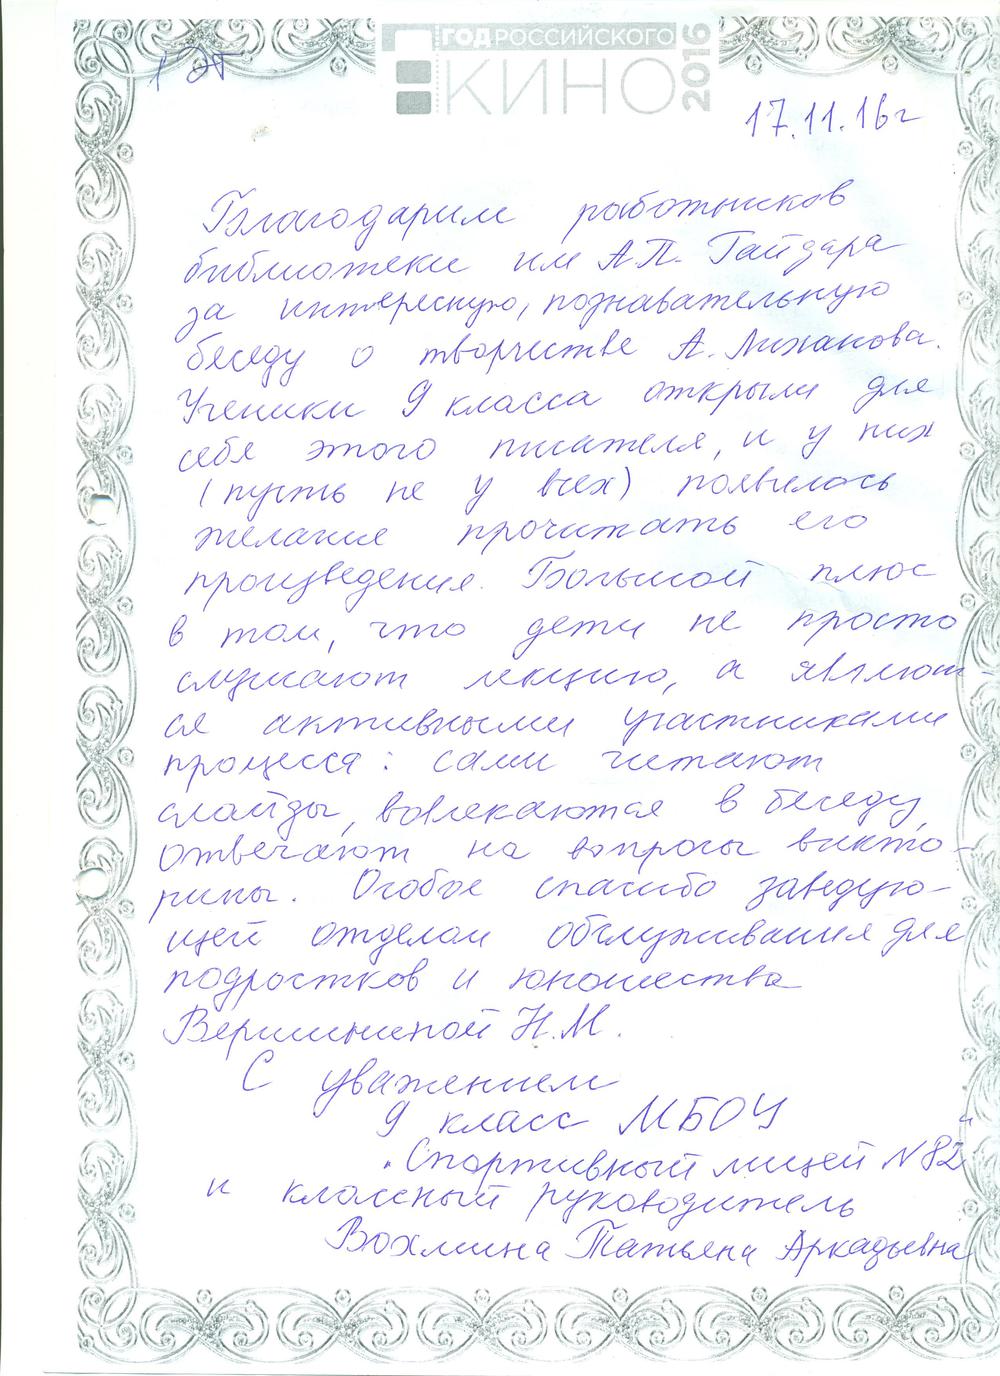 ГОД РОССИЙСКОГО
КИНО
2016
17.11.16г
Благодарим работников
библиотеки им А.П. Гайдара
за интересную, познавательную
беседу о творчестве А. Лиханова.
Ученики 9 класса открыли для
себя этого писателя, и у них
(пусть не у всех) появилось
желание прочитать его
произведения. Большой плюс
в том, что дети не просто
слушают лекцию, а являют-
ся активными участниками
процесса: сами читают
слайды, вовлекаются в беседу,
отвечают на вопросы викто-
рины. Особое спасибо заведую-
щей отделом обслуживания для
подростков и юношества
Вершининой Н.М.
С уважением
9 класс МБОУ
„Спортивный лицей N 82"
и классный руководитель
Вохмина Татьяна Аркадьевна